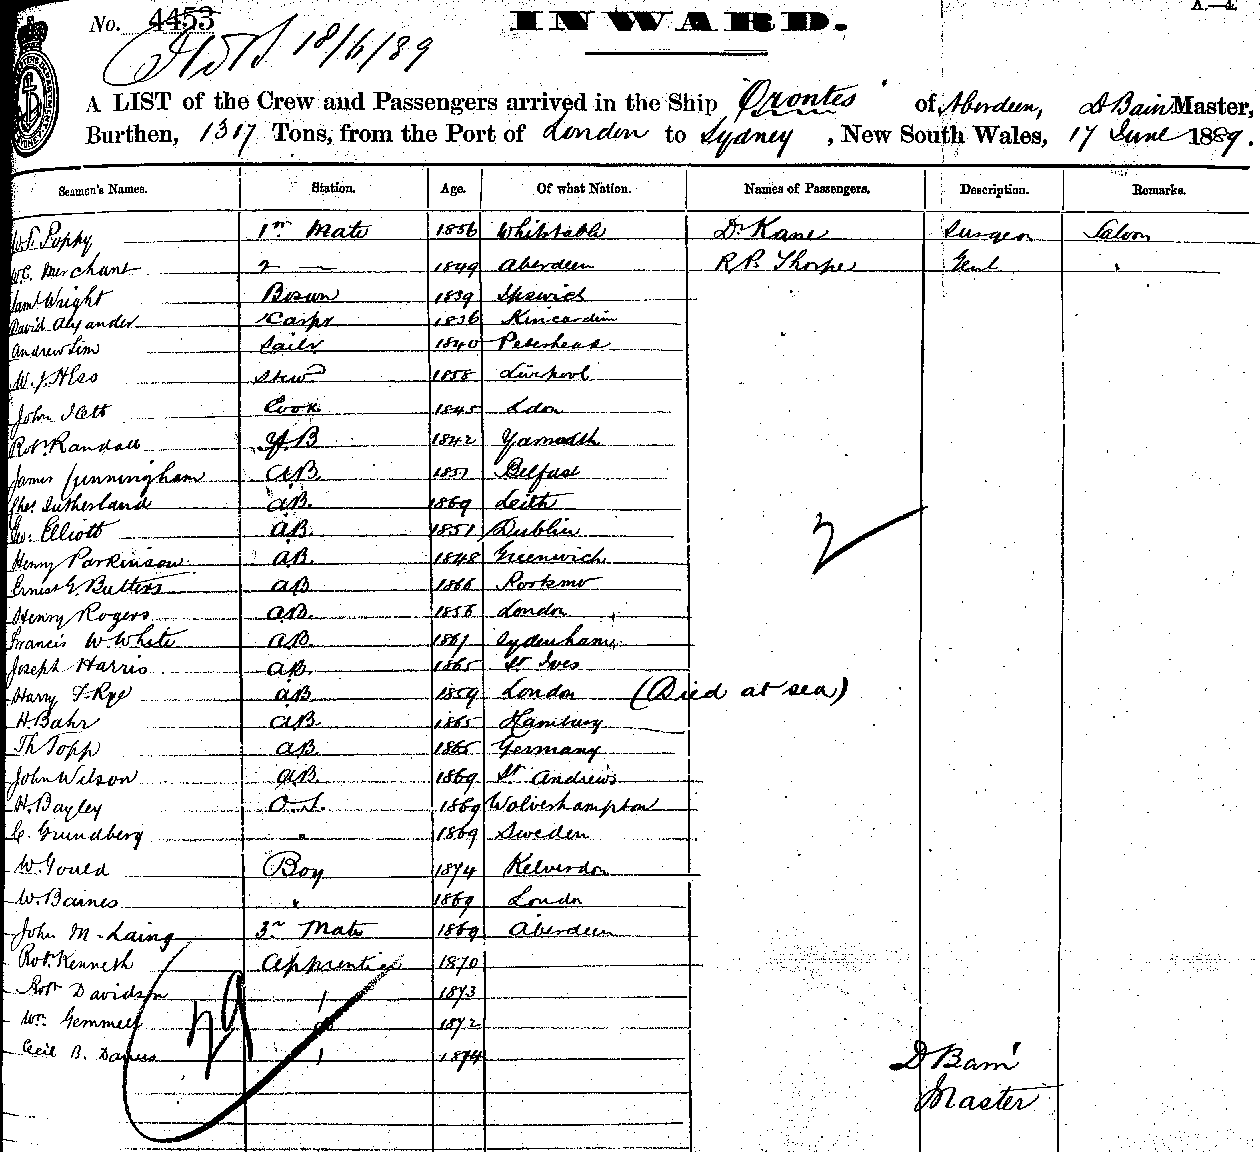 No. 4453
INWARD.
A.—4.
18/6/89
A LIST of the Crew and Passengers arrived in the Ship "Orontes" of Aberdeen, D Bain Master,
Burthen, 1317 Tons, from the Port of London to Sydney, New South Wales, 17 June 1889.
Seamen's Names. Station. Age. Of what Nation. Names of Passengers. Description. Remarks.
W.S. Popky 1st Mate 1856 Whitstable Dr Kane Surgeon Saloon
W.C. Merchant 2 — 1849 Aberdeen R.B. Thorpe Gent "
Saml Wright Bosun 1839 Ipswich
David Alexander Carpr 1836 Kincardin
Andrew Sim Sailr 1840 Peterhead
W. J. Hess Stewd 1858 Liverpool
John Cook 1845 Ldon
Robt Randall A.B 1842 Yarmouth
James Cunningham A.B. 1851 Belfast
Chas Sutherland A.B. 1869 Leith
Geo. Elliott A.B. 1851 Dublin
Henry Parkinson A.B. 1848 Greenwich
Ernest G. Butters A.B 1866 Portsmo
Henry Rogers A.B. 1856 London
Francis W. White A.B. 1867 Sydenham
Joseph Harris A.B. 1865 St Ives
Harry F Rye A.B 1859 London (Died at sea)
H. Bahr A.B. 1865 Hamburg
Th Topp A.B. 1865 Germany
John Wilson A.B. 1869 St Andrews
H. Bayley O.S. 1869 Wolverhampton
C. Grundberg " 1869 Sweden
W. Gould Boy 1874 Kelverdon
W. Baines " 1869 London
John M. Laing 3rd Mate 1869 Aberdeen
Robt Kenneth Apprentice 1870
Robt Davidson " 1873
Wm Gemmell " 1872
Cecil B. Davies " 1874
2
29
D Bain
Master